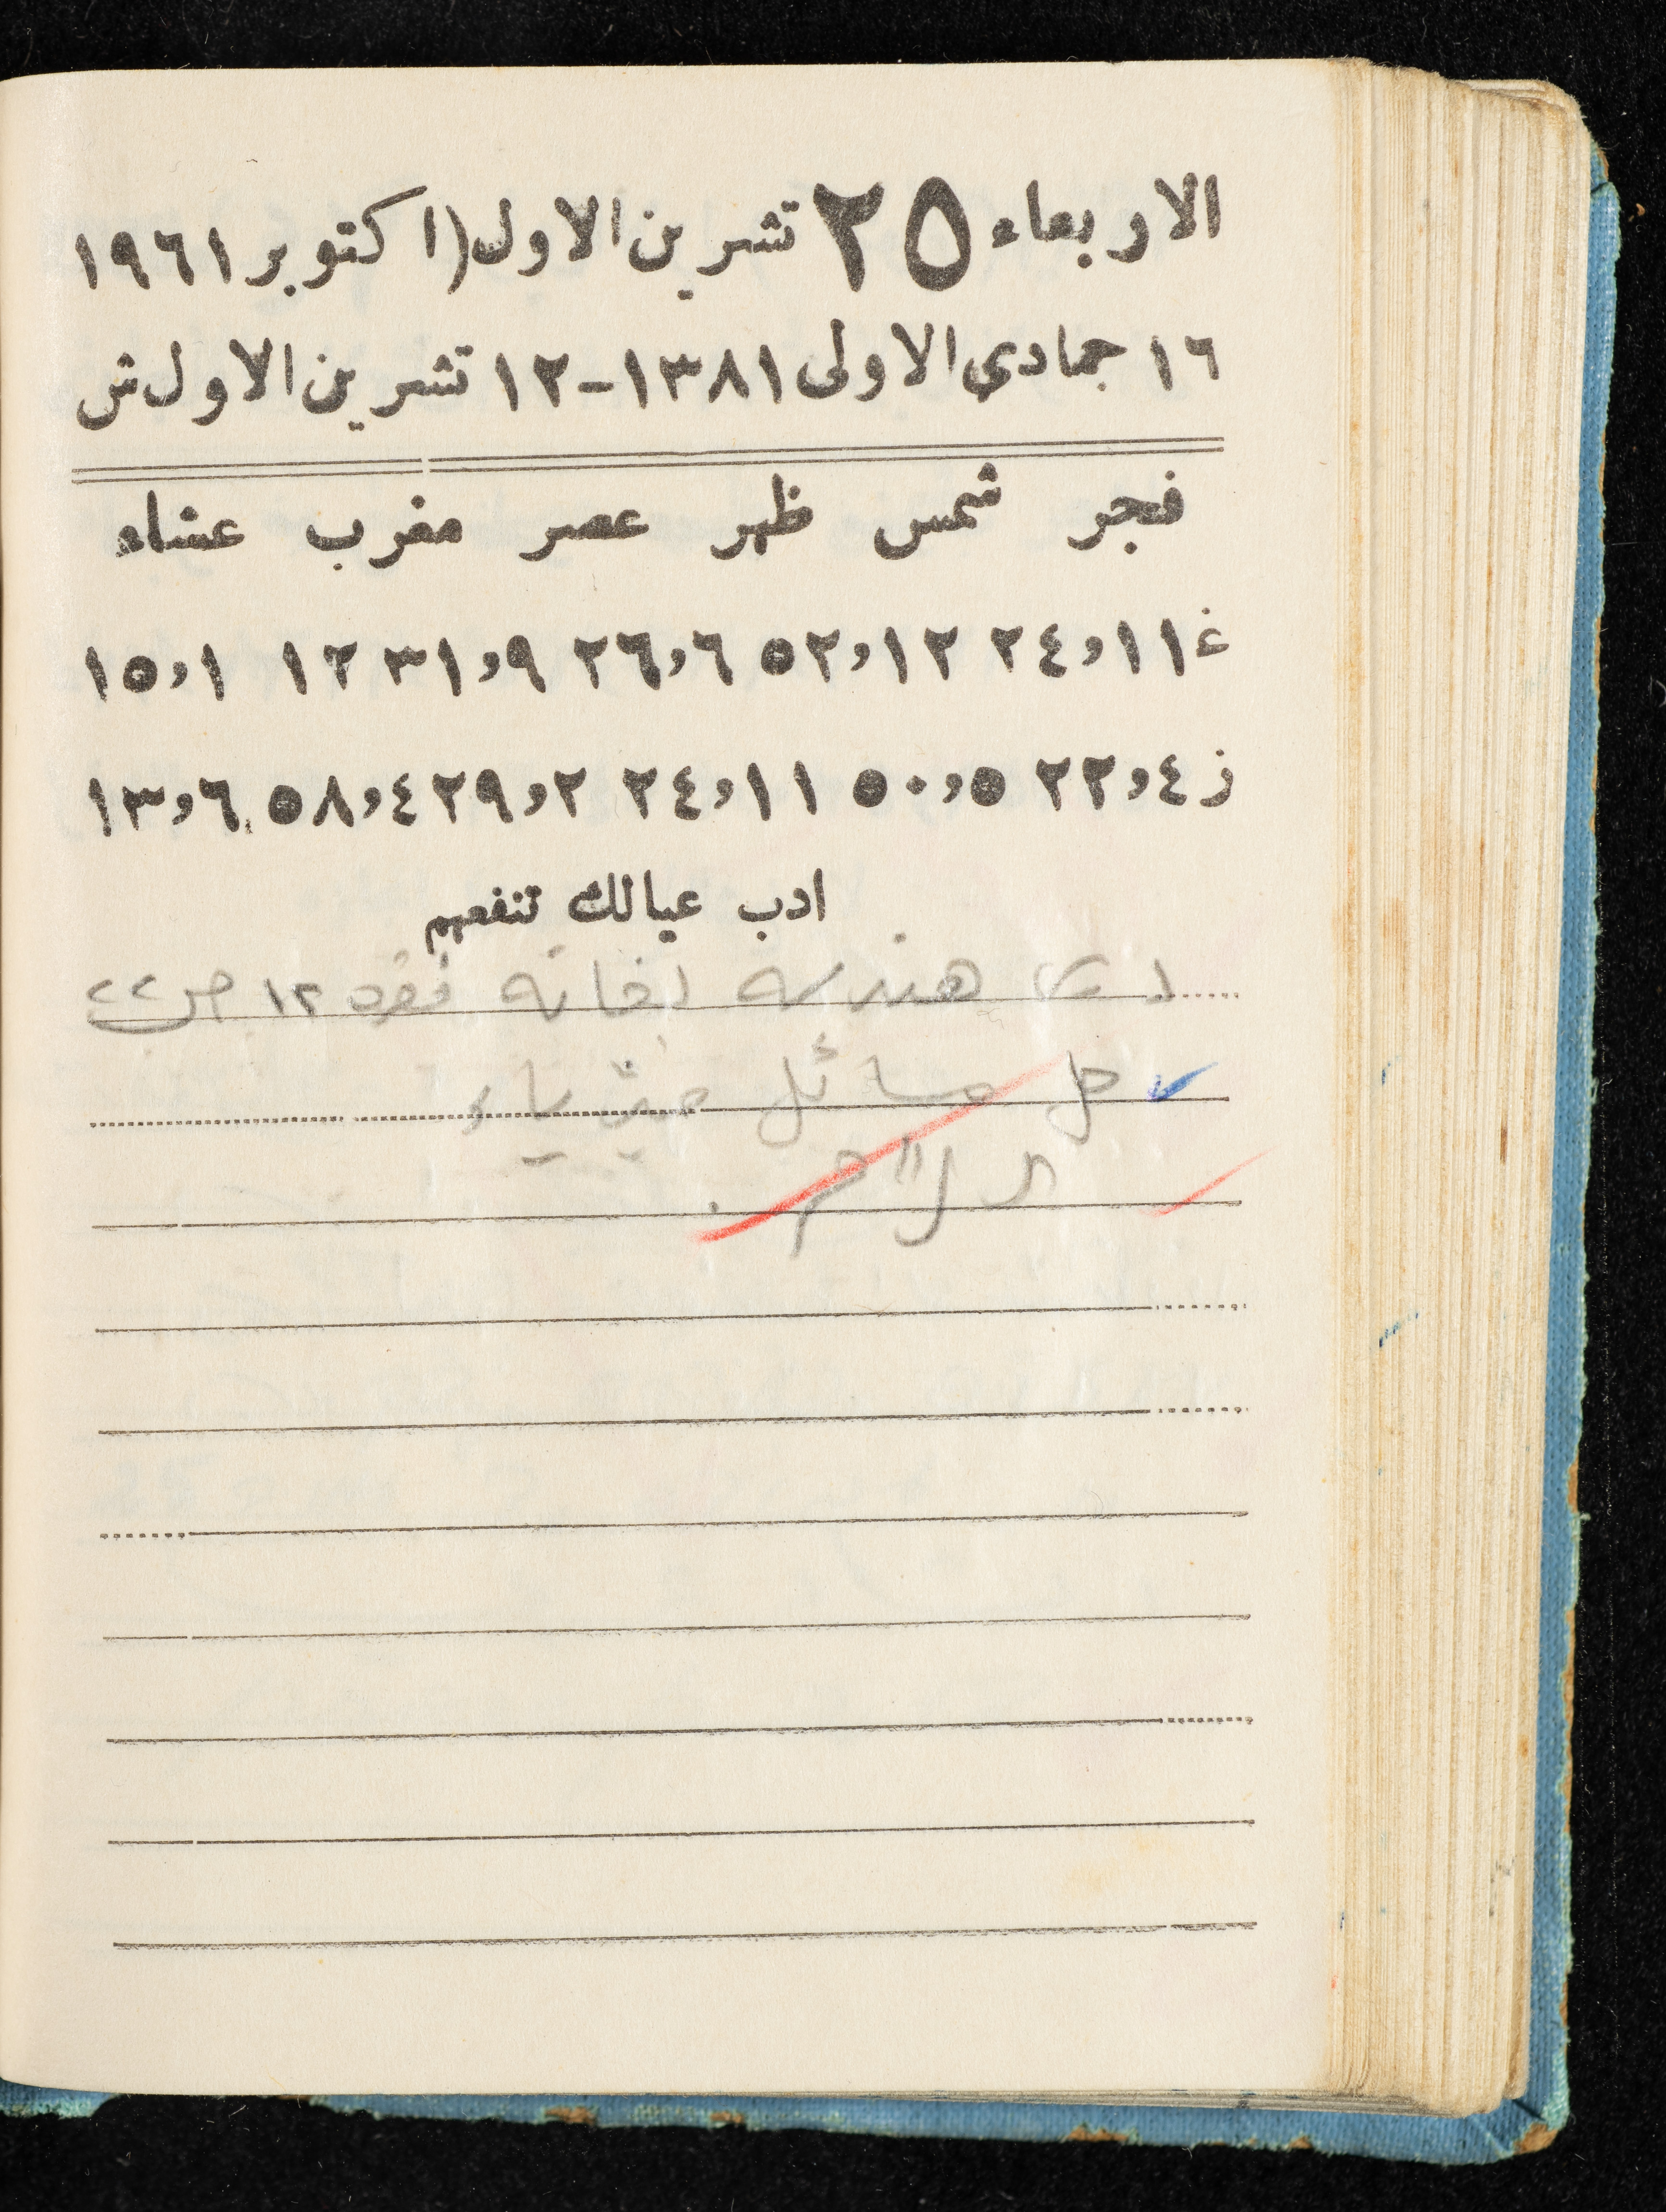 الاربعاء ٢٥ تشرين الاول (اكتوبر ١٩٦١
١٦ جمادي الاولى ١٣٨١-١٢ تشرين الاول ش
فجر شمس ظهر عصر مغرب عشاء
غ ١١,٢٤ ١٢,٥٢ ٦,٢٦ ٩,٣١ ١٢ ١,١٥
ز ٤,٢٢ ٥,٥٠ ١١,٢٤ ٢,٢٩ ٤,٥٨ ٦,١٣
ادب عيالك تنفعهم
هندسه فقره ١٢ ص ٢٢
حل مسائل فيزياء